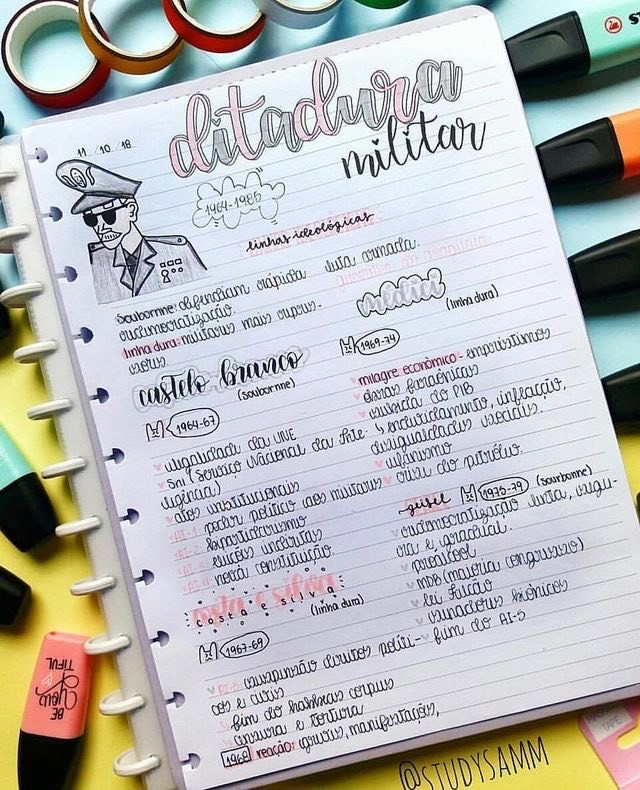 11 / 10 / 18
ditadura
militar
1964-1985
linhas ideológicas
Sourbonne: defendiam rápida
redemocratização.
linha dura: militares mais repres-
sores.
castelo branco
(Sourbonne)
1964-67
ilegalidade da UNE
SNI (Serviço Nacional da Inte-
ligência)
atos institucionais
AI-1: poder político aos militares
AI-2: bipartidarismo
AI-3: eleições indiretas
AI-4: nova constituição
costa e silva
costa e silva
(linha dura)
1967-69
AI-5: suspensão direitos políti-
cos e civis
fim do habbeas corpus
censura e tortura
1968 reação: greves, manifestações,
luta armada.
guerrilha do araguaia
médici
(linha dura)
1969-74
milagre econômico - empréstimos
obras faraônicas
subida do PIB
↳ endividamento, inflação,
desigualdades sociais.
ufanismo
crise do petróleo.
geisel
1975-79
(Sourbonne)
redemocratização lenta, segu-
ra e gradual.
proálcool
MDB (maioria congresso)
lei falcão
senadores biônicos
fim do AI-5
BE
YOU
TIFUL
ST
TAPE
@STUDYSAMM